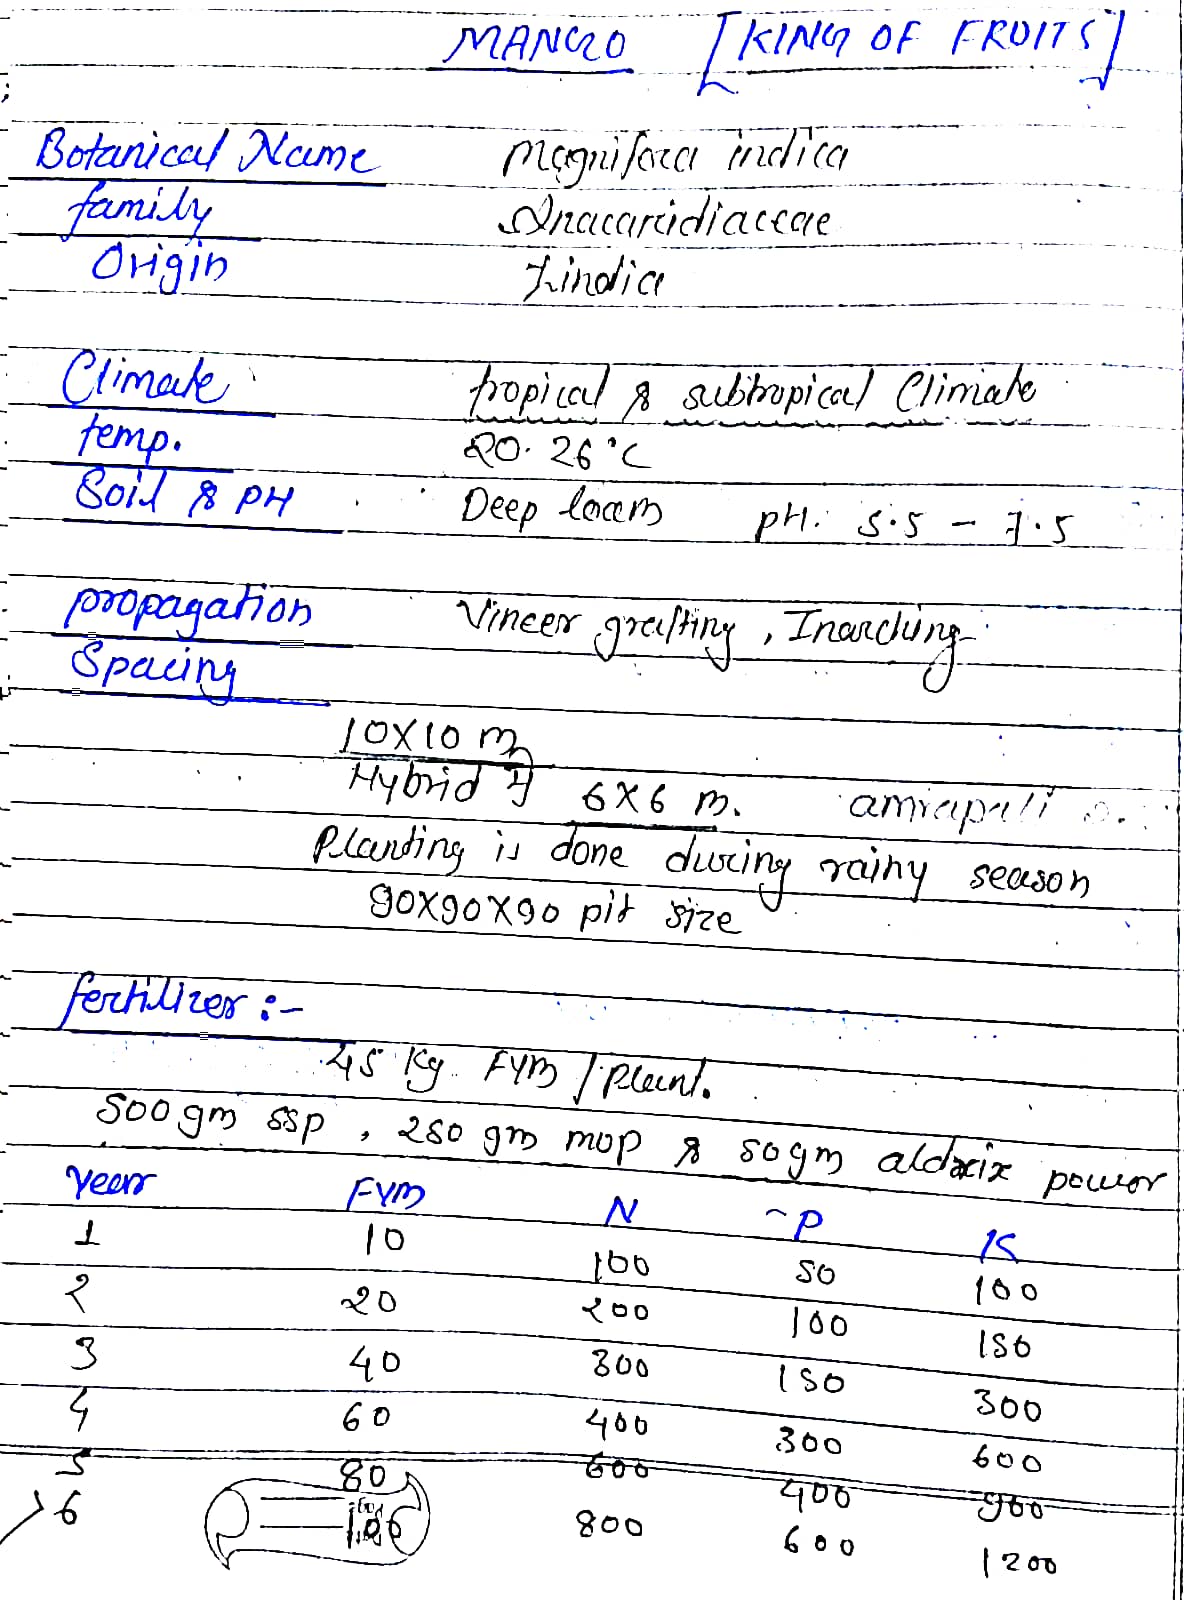 MANGO [KING OF FRUITS]
Botanical Name Magnifera indica
family Anacaridiaceae
Origin Iindia
Climate tropical & subtropical Climate
temp. 20. 26°C
Soil & PH Deep loam pH. 5.5 - 7.5
propagation Vineer grafting, Inarching
Spacing
10X10 m
Hybrid में 6X6 m. amrapali
Planting is done during rainy season
90X90X90 pit size
fertilizer :-
45 Kg FYM / Plant.
500 gm SSP, 250 gm mop & 50 gm aldrix power
Year FYM N P K
1 10 100 50 100
2 20 200 100 150
3 40 300 150 300
4 60 400 300 600
5 80 600 400 900
>6 100 800 600 1200